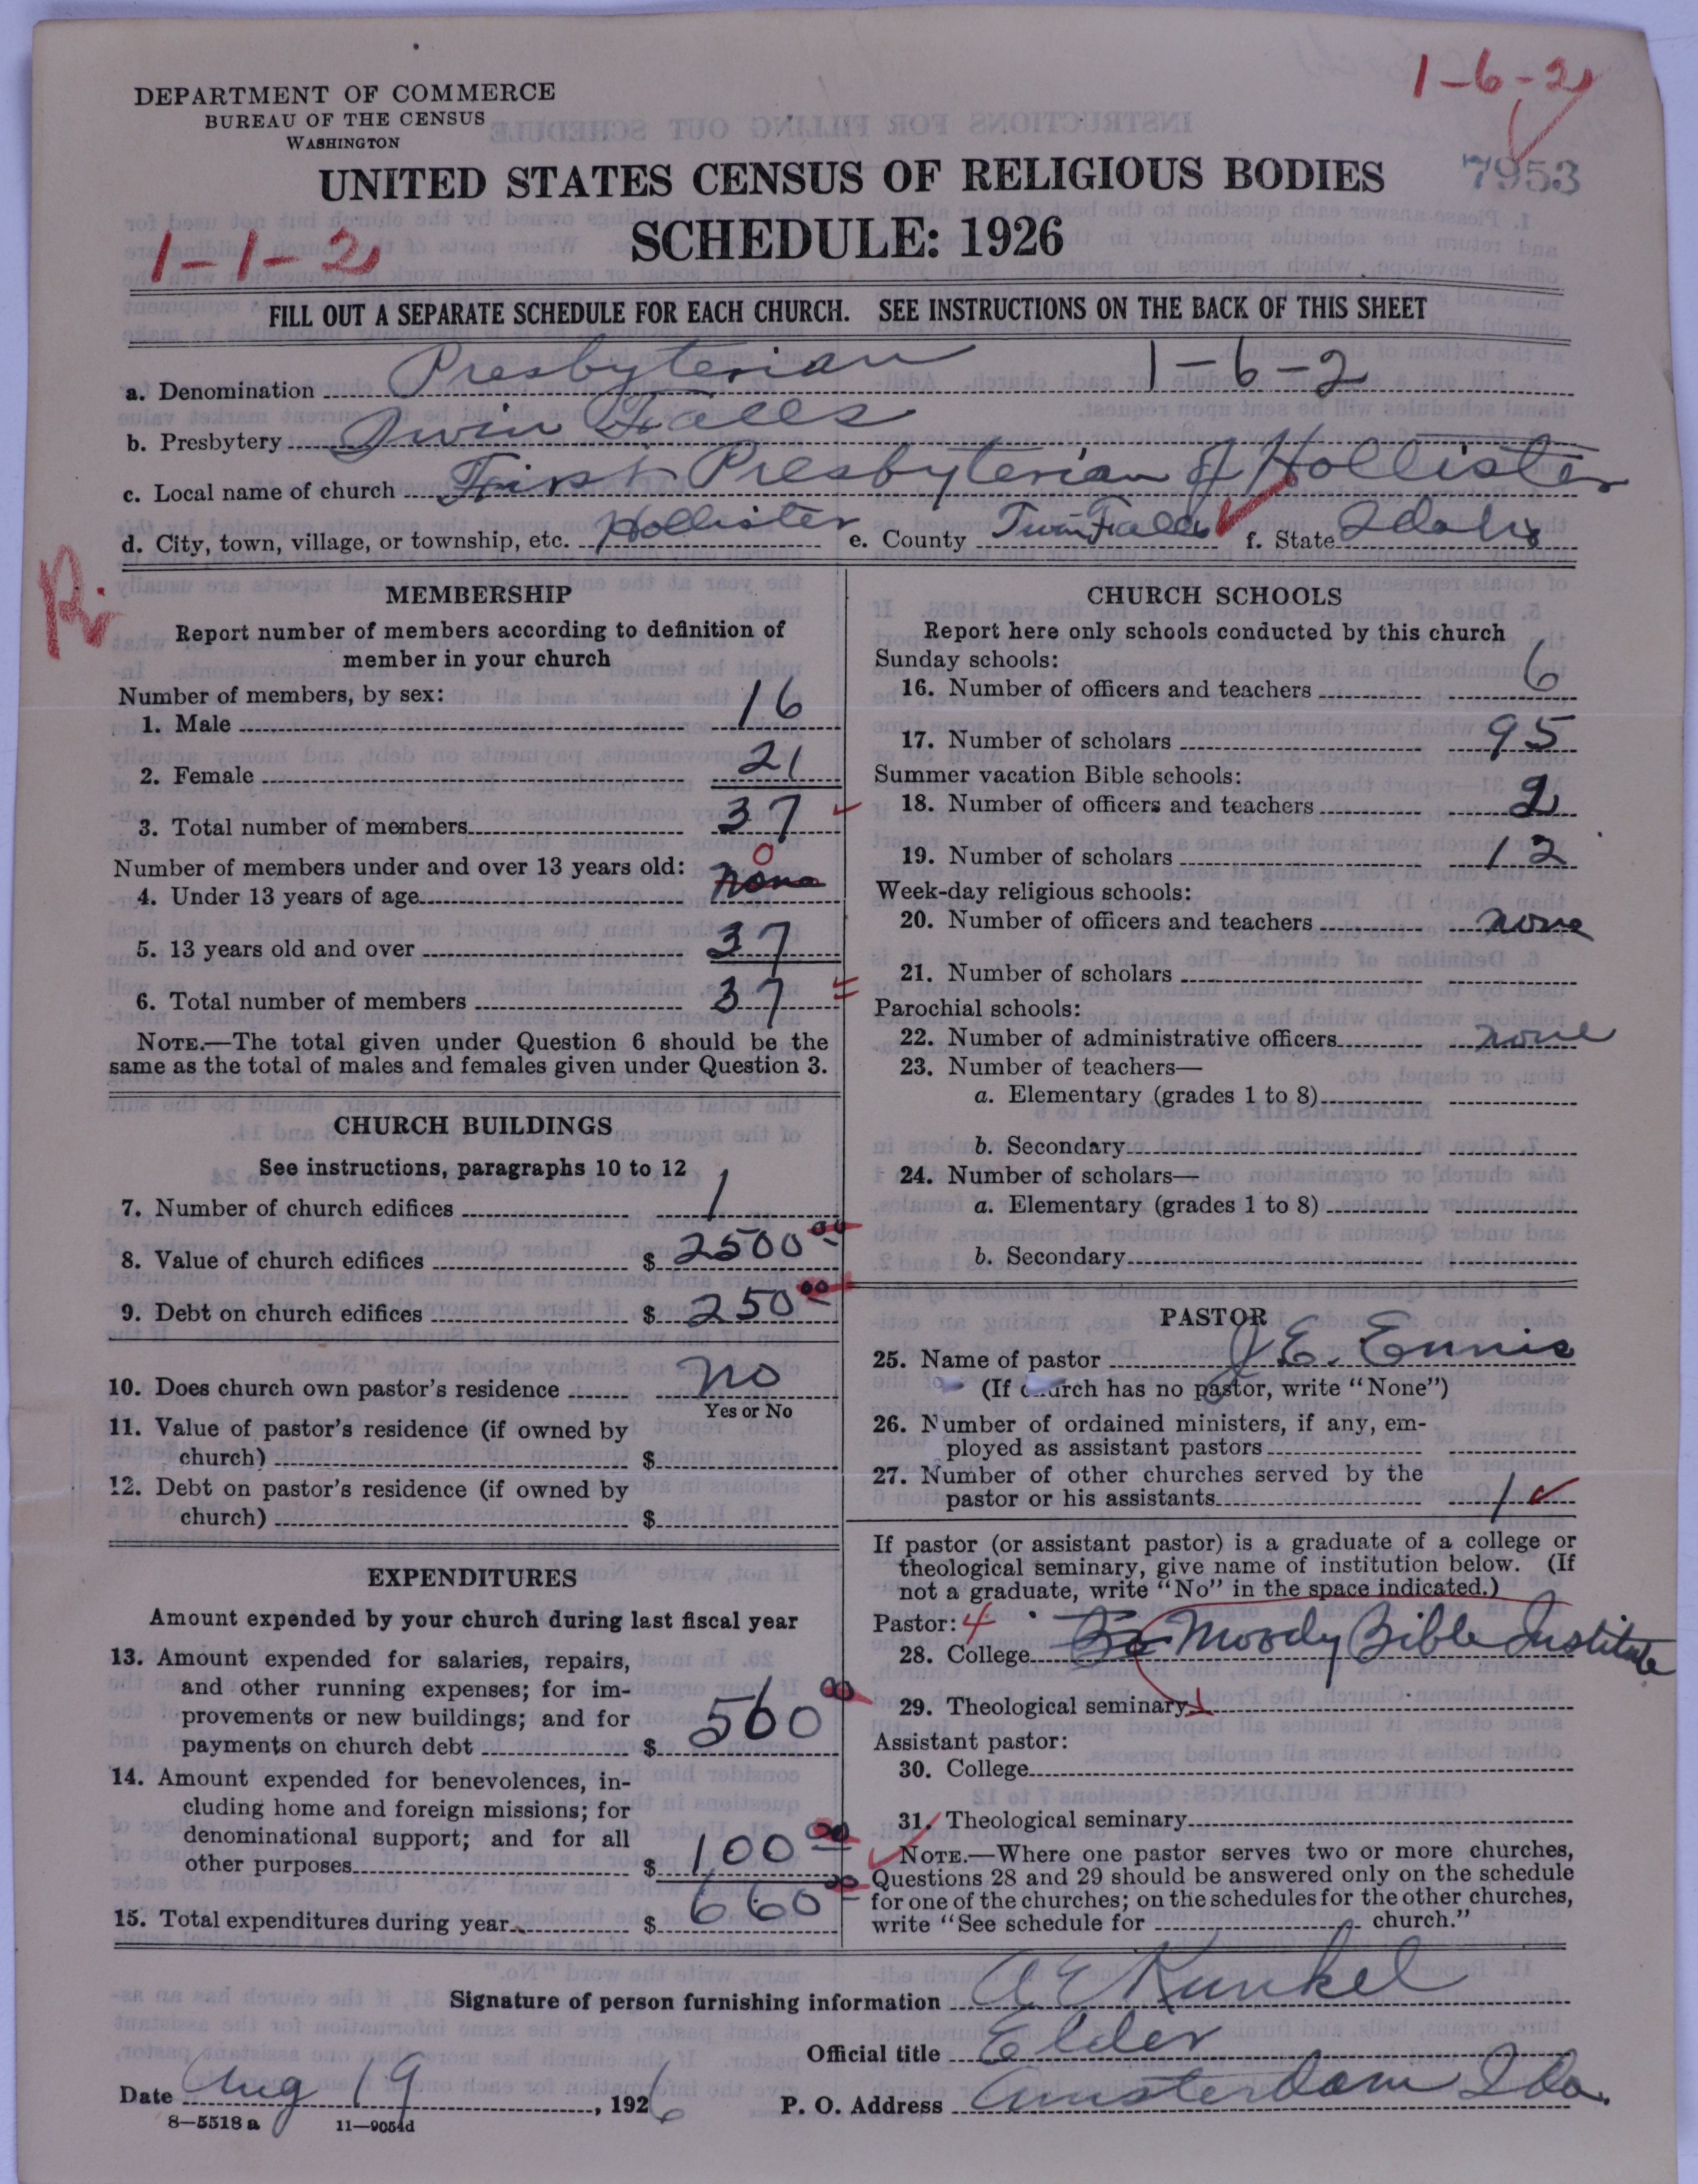 1-6-2
DEPARTMENT OF COMMERCE
BUREAU OF THE CENSUS
WASHINGTON
UNITED STATES CENSUS OF RELIGIOUS BODIES
7953
SCHEDULE: 1926
1-1-2
FILL OUT A SEPARATE SCHEDULE FOR EACH CHURCH. SEE INSTRUCTIONS ON THE BACK OF THIS SHEET
a. Denomination Presbyterian 1-6-2
b. Presbytery Twin Falls
c. Local name of church First Presbyterian of Hollister
d. City, town, village, or township, etc. Hollister e. County Twin Falls f. State Idaho
MEMBERSHIP
Report number of members according to definition of
member in your church
Number of members, by sex:
1. Male 16
2. Female 21
3. Total number of members 37
Number of members under and over 13 years old: 0
4. Under 13 years of age none
5. 13 years old and over 37
6. Total number of members 37
NOTE.—The total given under Question 6 should be the
same as the total of males and females given under Question 3.
CHURCH BUILDINGS
See instructions, paragraphs 10 to 12
7. Number of church edifices 1
8. Value of church edifices $ 2500 00
9. Debt on church edifices $ 250 00
10. Does church own pastor's residence no
Yes or No
11. Value of pastor's residence (if owned by
church) $
12. Debt on pastor's residence (if owned by
church) $
EXPENDITURES
Amount expended by your church during last fiscal year
13. Amount expended for salaries, repairs,
and other running expenses; for im-
provements or new buildings; and for
payments on church debt $ 560 00
14. Amount expended for benevolences, in-
cluding home and foreign missions; for
denominational support; and for all
other purposes $ 100 00
15. Total expenditures during year $ 660 00
CHURCH SCHOOLS
Report here only schools conducted by this church
Sunday schools:
16. Number of officers and teachers 6
17. Number of scholars 95
Summer vacation Bible schools:
18. Number of officers and teachers 2
19. Number of scholars 12
Week-day religious schools:
20. Number of officers and teachers none
21. Number of scholars
Parochial schools:
22. Number of administrative officers none
23. Number of teachers—
a. Elementary (grades 1 to 8)
b. Secondary
24. Number of scholars—
a. Elementary (grades 1 to 8)
b. Secondary
PASTOR
25. Name of pastor J. E. Ennis
(If church has no pastor, write "None")
26. Number of ordained ministers, if any, em-
ployed as assistant pastors
27. Number of other churches served by the
pastor or his assistants 1
If pastor (or assistant pastor) is a graduate of a college or
theological seminary, give name of institution below. (If
not a graduate, write "No" in the space indicated.)
Pastor: 4
28. College Moody Bible Institute
29. Theological seminary
Assistant pastor:
30. College
31. Theological seminary
NOTE.—Where one pastor serves two or more churches,
Questions 28 and 29 should be answered only on the schedule
for one of the churches; on the schedules for the other churches,
write "See schedule for church."
Signature of person furnishing information A E Kunkel
Official title Elder
Date Aug 19, 1926 P. O. Address Amsterdam Ida.
8-5518 a 11-9054d